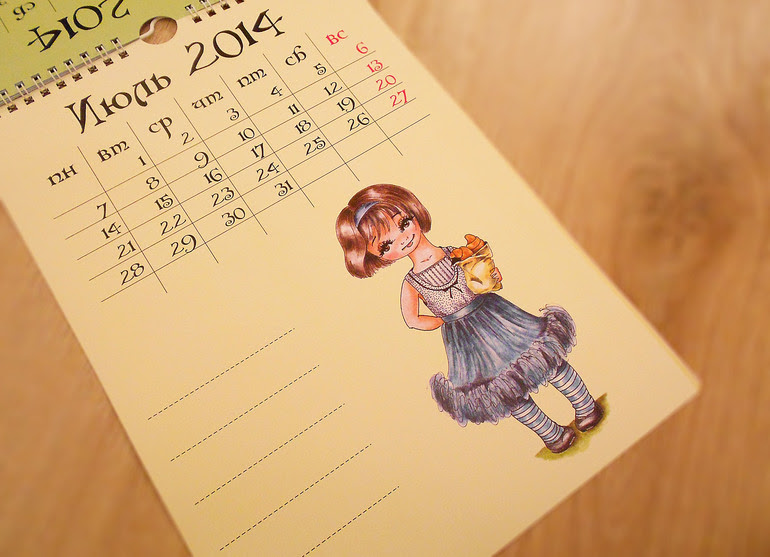 сб
2014
Июль 2014
пн вт ср чт пт сб вс
1 2 3 4 5 6
7 8 9 10 11 12 13
14 15 16 17 18 19 20
21 22 23 24 25 26 27
28 29 30 31